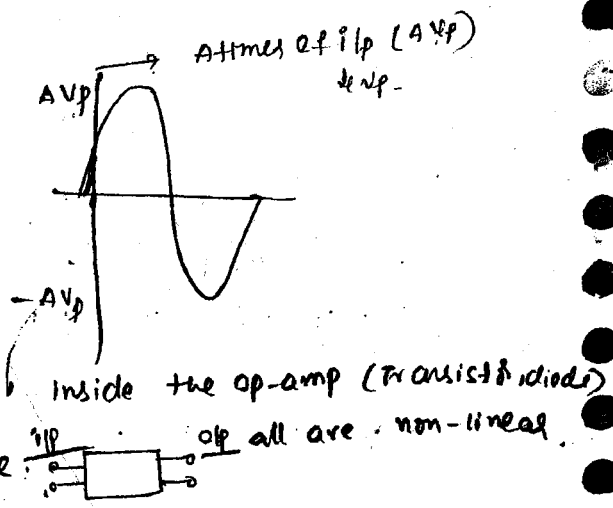 A times of i/p (AVp)
AVp
- AVp
inside the op-amp (Transistor, diode)
i/p o/p all are non-linear.